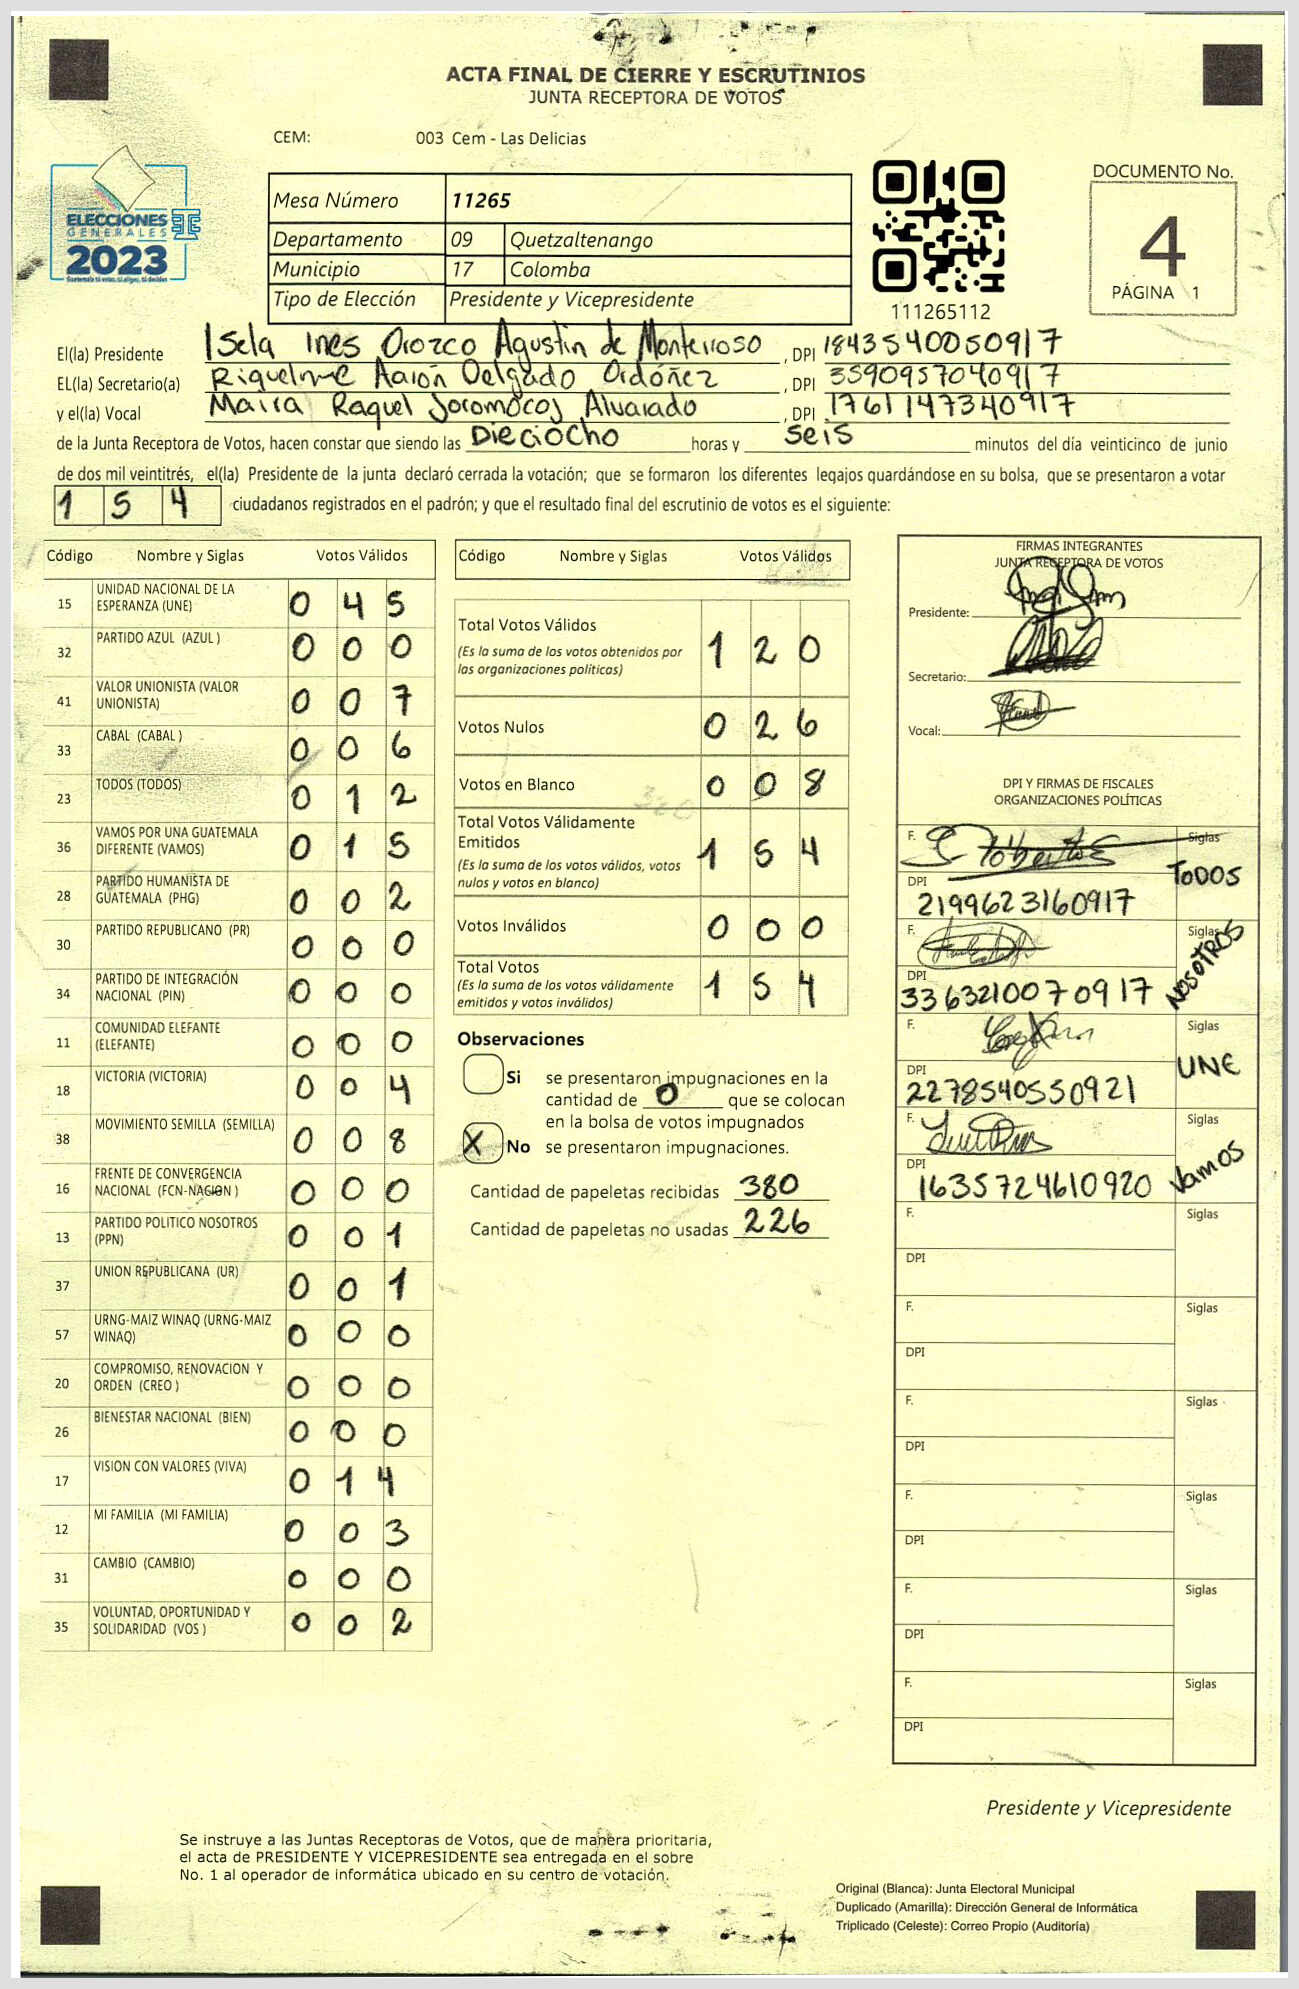 ACTA FINAL DE CIERRE Y ESCRUTINIOS
JUNTA RECEPTORA DE VOTOS
CEM: 003 Cem - Las Delicias
ELECCIONES
GENERALES
2023
Mesa Número 11265
Departamento 09 Quetzaltenango
Municipio 17 Colomba
Tipo de Elección Presidente y Vicepresidente
111265112
DOCUMENTO No.
4
PÁGINA 1
El(la) Presidente Isela Ines Orozco Agustin de Monterroso, DPI 1843540050917
EL(la) Secretario(a) Riquelme Aarón Delgado Ordóñez, DPI 3590957040917
y el(la) Vocal Maira Raquel Alvarado, DPI 1761147340917
de la Junta Receptora de Votos, hacen constar que siendo las Dieciocho horas y seis minutos del día veinticinco de junio
de dos mil veintitrés, el(la) Presidente de la junta declaró cerrada la votación; que se formaron los diferentes legajos guardándose en su bolsa, que se presentaron a votar
154 ciudadanos registrados en el padrón; y que el resultado final del escrutinio de votos es el siguiente:
Código Nombre y Siglas Votos Válidos
15 UNIDAD NACIONAL DE LA ESPERANZA (UNE) 0 4 5
32 PARTIDO AZUL (AZUL ) 0 0 0
41 VALOR UNIONISTA (VALOR UNIONISTA) 0 0 7
33 CABAL (CABAL ) 0 0 6
23 TODOS (TODOS) 0 1 2
36 VAMOS POR UNA GUATEMALA DIFERENTE (VAMOS) 0 1 5
28 PARTIDO HUMANISTA DE GUATEMALA (PHG) 0 0 2
30 PARTIDO REPUBLICANO (PR) 0 0 0
34 PARTIDO DE INTEGRACIÓN NACIONAL (PIN) 0 0 0
11 COMUNIDAD ELEFANTE (ELEFANTE) 0 0 0
18 VICTORIA (VICTORIA) 0 0 4
38 MOVIMIENTO SEMILLA (SEMILLA) 0 0 8
16 FRENTE DE CONVERGENCIA NACIONAL (FCN-NACION ) 0 0 0
13 PARTIDO POLITICO NOSOTROS (PPN) 0 0 1
37 UNION REPUBLICANA (UR) 0 0 1
57 URNG-MAIZ WINAQ (URNG-MAIZ WINAQ) 0 0 0
20 COMPROMISO, RENOVACION Y ORDEN (CREO ) 0 0 0
26 BIENESTAR NACIONAL (BIEN) 0 0 0
17 VISION CON VALORES (VIVA) 0 1 4
12 MI FAMILIA (MI FAMILIA) 0 0 3
31 CAMBIO (CAMBIO) 0 0 0
35 VOLUNTAD, OPORTUNIDAD Y SOLIDARIDAD (VOS ) 0 0 2
Código Nombre y Siglas Votos Válidos
Total Votos Válidos 1 2 0
(Es la suma de los votos obtenidos por
las organizaciones políticas)
Votos Nulos 0 2 6
Votos en Blanco 0 0 8
Total Votos Válidamente
Emitidos 1 5 4
(Es la suma de los votos válidos, votos
nulos y votos en blanco)
Votos Inválidos 0 0 0
Total Votos 1 5 4
(Es la suma de los votos válidamente
emitidos y votos inválidos)
Observaciones
Si se presentaron impugnaciones en la
cantidad de 0 que se colocan
en la bolsa de votos impugnados
X No se presentaron impugnaciones.
Cantidad de papeletas recibidas 380
Cantidad de papeletas no usadas 226
FIRMAS INTEGRANTES
JUNTA RECEPTORA DE VOTOS
Presidente:
Secretario:
Vocal:
DPI Y FIRMAS DE FISCALES
ORGANIZACIONES POLÍTICAS
F. Siglas
TODOS
DPI
2199623160917
F. Siglas
NOSOTROS
DPI
3363210070917
F. Siglas
UNE
DPI
2278540550921
F. Siglas
Vamos
DPI
1635724610920
F. Siglas
DPI
F. Siglas
DPI
F. Siglas
DPI
F. Siglas
DPI
F. Siglas
DPI
F. Siglas
DPI
Presidente y Vicepresidente
Se instruye a las Juntas Receptoras de Votos, que de manera prioritaria,
el acta de PRESIDENTE Y VICEPRESIDENTE sea entregada en el sobre
No. 1 al operador de informática ubicado en su centro de votación.
Original (Blanca): Junta Electoral Municipal
Duplicado (Amarilla): Dirección General de Informática
Triplicado (Celeste): Correo Propio (Auditoría)